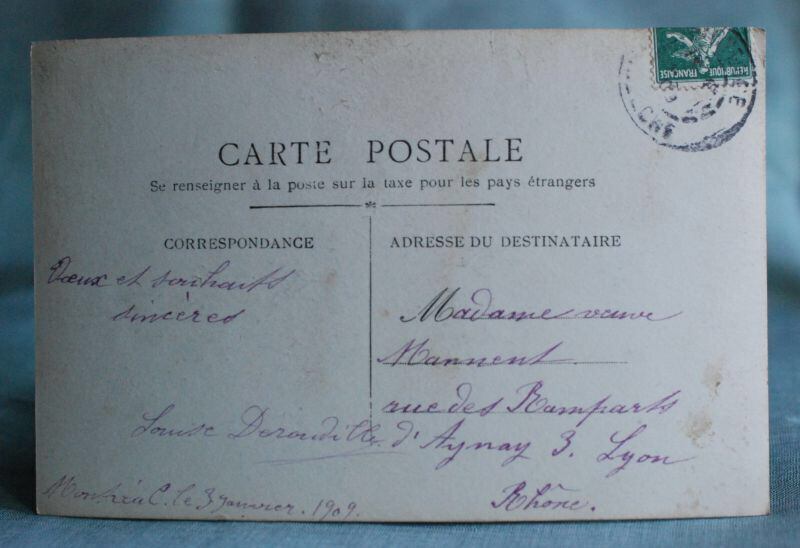 RÉPUBLIQUE FRANÇAISE
CARTE POSTALE
Se renseigner à la poste sur la taxe pour les pays étrangers
CORRESPONDANCE
Vœux et souhaits
sincères
Louise
le 3 janvier. 1909.
ADRESSE DU DESTINATAIRE
Madame veuve
Mannent
rue des Remparts
d'Aynay 3. Lyon
Rhône.